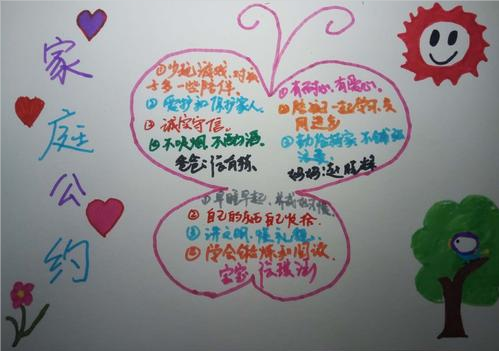 家庭公约
①少玩游戏,对孩
子多一些陪伴。
②爱护和保护家人。
③诚实守信。
④不吸烟,不酗酒。
爸爸:
①有耐心,有爱心。
②陪孩子一起学习,共
同进步
③勤俭持家 不铺张
浪费。
妈妈:赵
①早睡早起,养成好习惯
②自己的东西自己收拾
③讲文明,懂礼貌
④学会锻炼和阅读
宝宝: